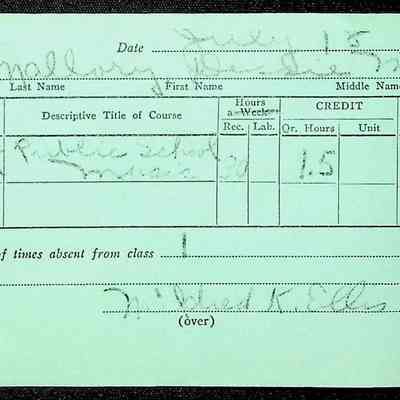 Date July 15
Mallory
Last Name First Name Middle Name
Hours
a Week CREDIT
Descriptive Title of Course Rec. Lab. Qr. Hours Unit
Public School 30 1.5
Music
of times absent from class 1
Mildred K. Ellis
(over)